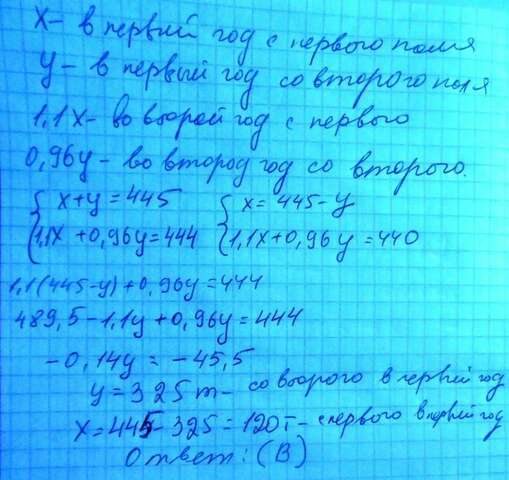 X - в первый год с первого поля
y - в первый год со второго поля
1,1x - во второй год с первого
0,96y - во второй год со второго.
{ x+y=445 { x=445-y
{ 1,1x+0,96y=444 { 1,1x+0,96y=440
1,1(445-y)+0,96y=444
489,5-1,1y+0,96y=444
-0,14y=-45,5
y=325т - со второго в первый год
x=445-325=120т - с первого в первый год
Ответ: (В)